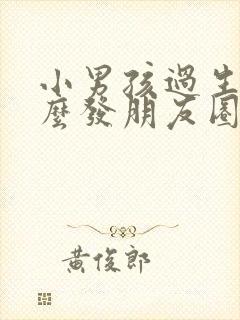 小男孩過生
麼發朋友圈
黃俊郎